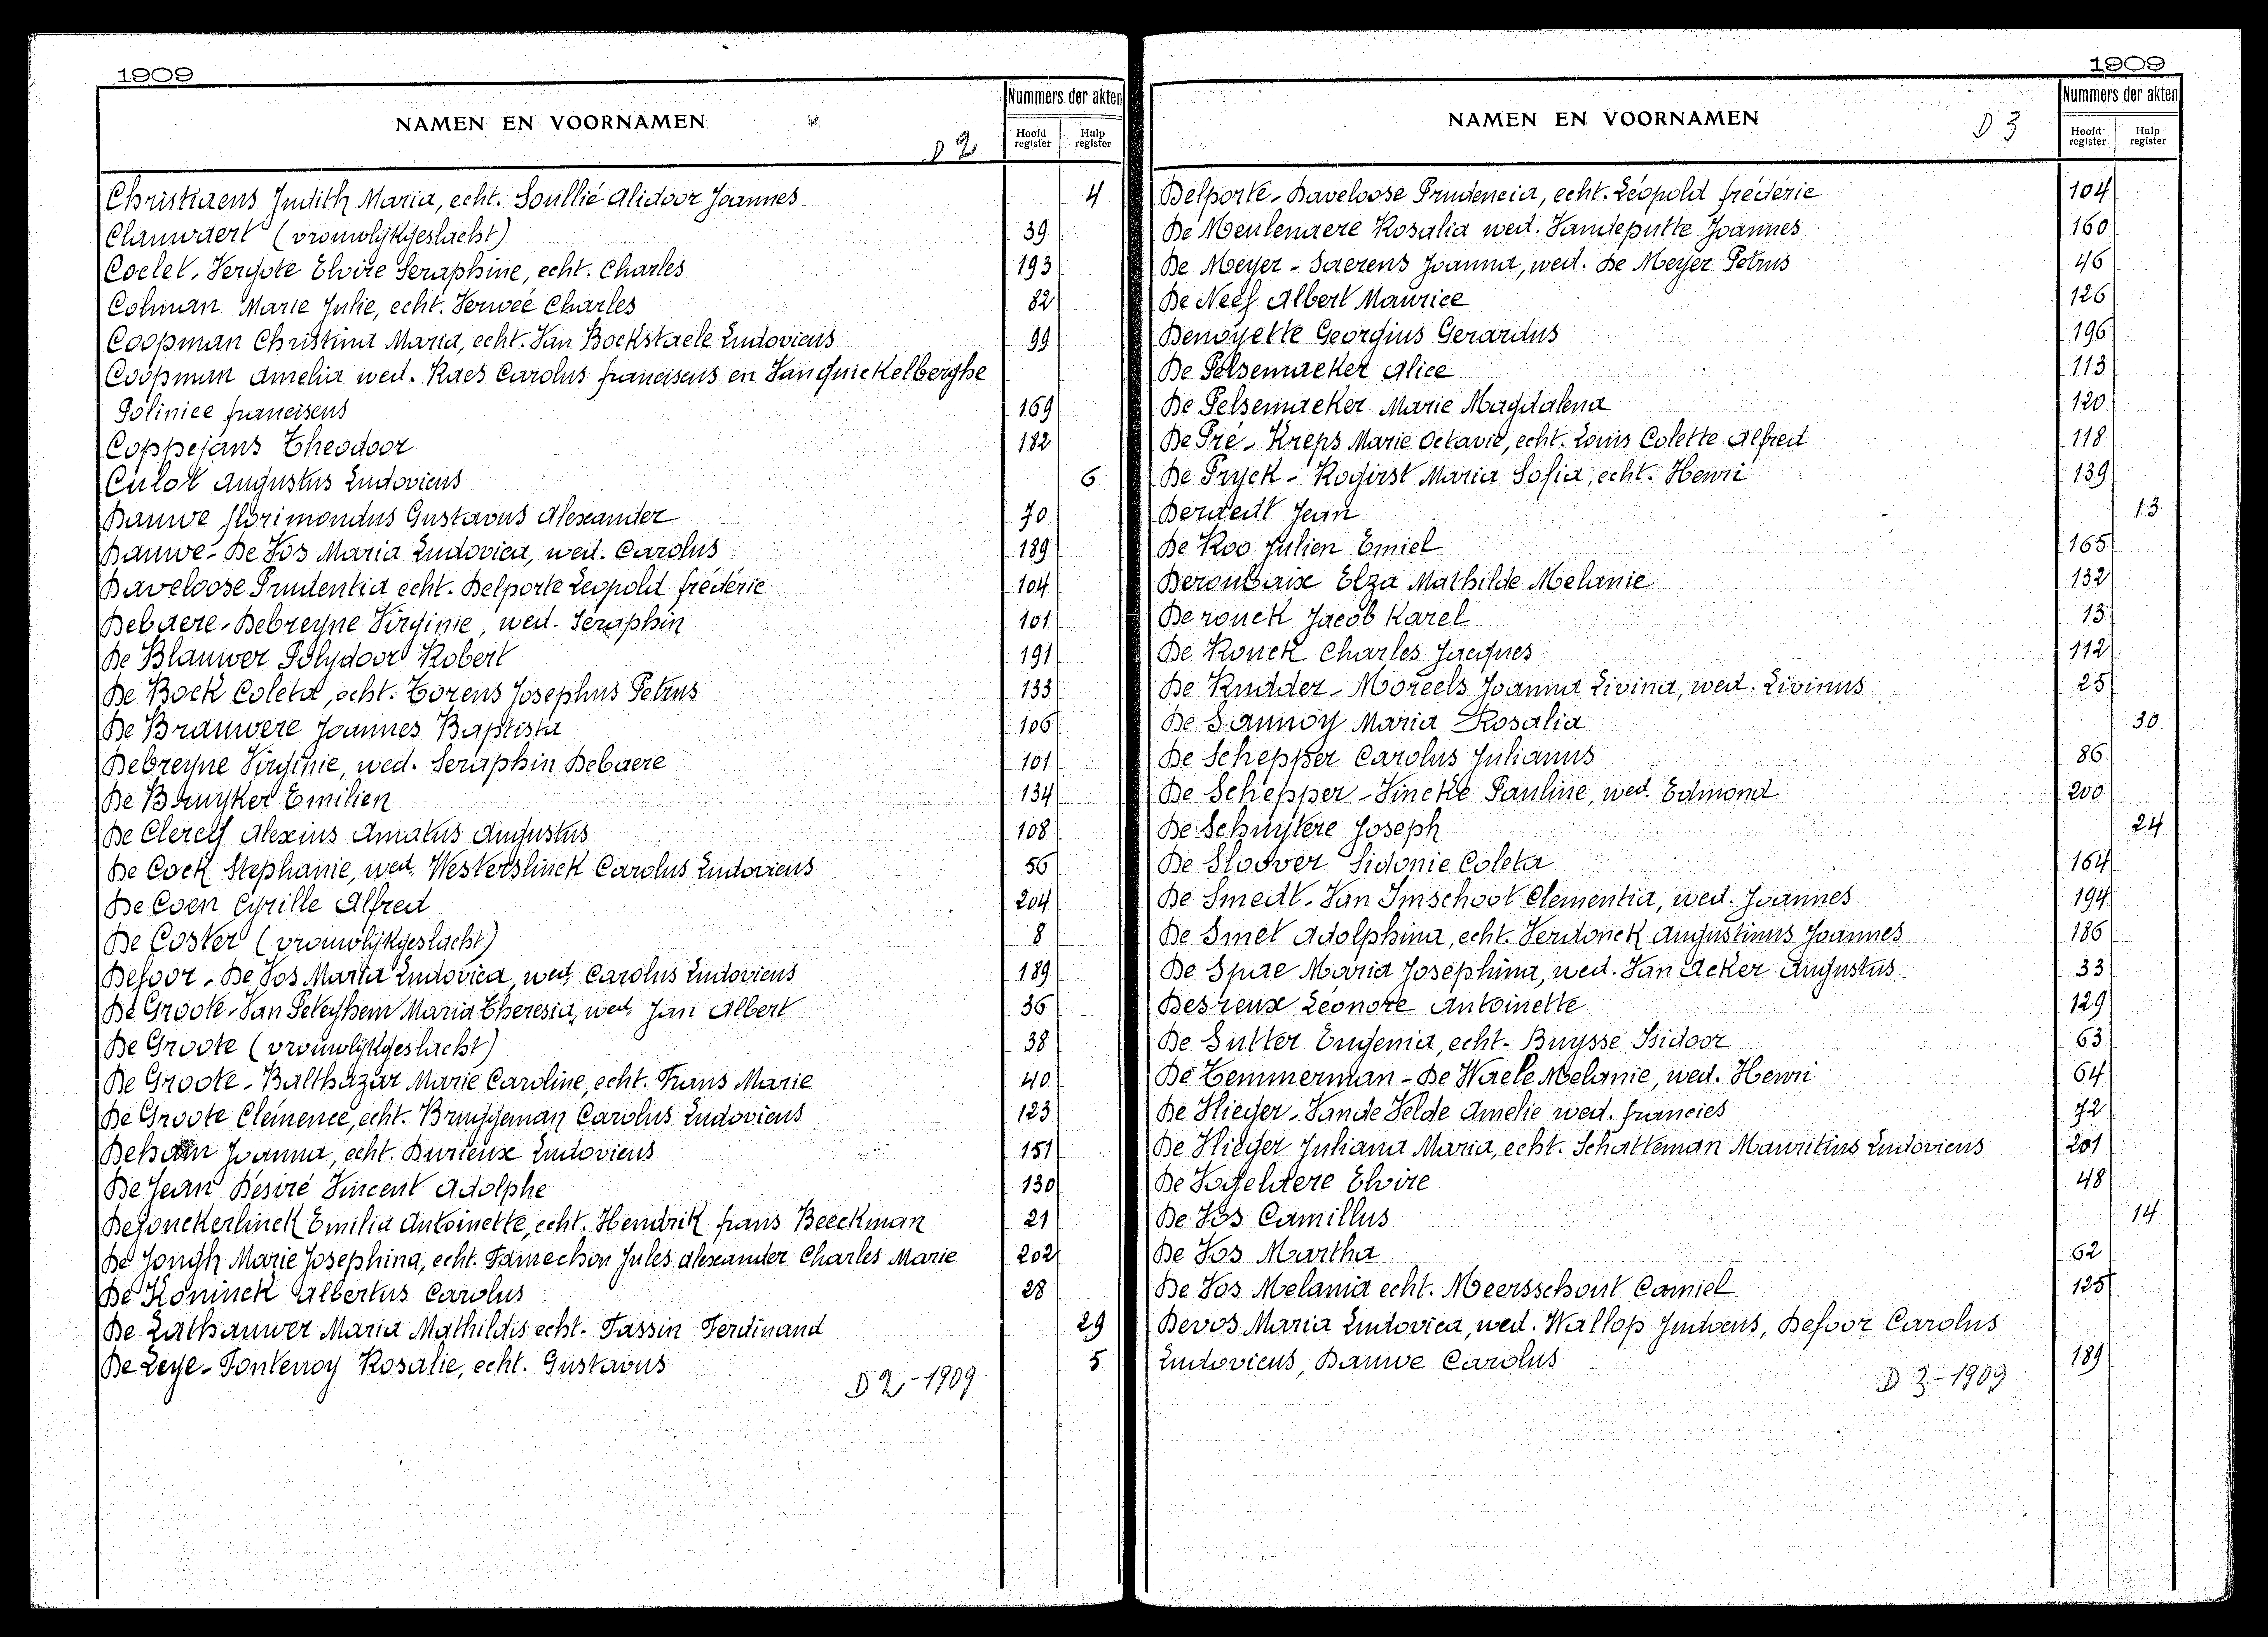 1909
NAMEN EN VOORNAMEN
D 2
Nummers der akten
Hoofd register
Hulp register
Christiaens Judith Maria, echt. Soullié Alidoor Joannes 4
Clauwaert (vrouwlijkgeslacht) 39
Coelet-Vergote Elvire Seraphine, echt. Charles 193
Colman Marie Julie, echt. Verweé Charles 82
Coopman Christina Maria, echt. Van Bockstaele Ludovicus 99
Coopman Amelia wed. Raes Carolus franciscus en Vanquickelberghe
Polinice franciscus 169
Coppejans Theodoor 182
Culot Augustus Ludovicus 6
Dauwe florimondus Gustavus Alexander 70
Dauwe-De Vos Maria Ludovica, wed. Carolus 189
Daveloose Prudentia echt. Delporte Leopold fréderic 104
Debaere-Debreyne Virginie, wed. Seraphin 101
De Blauwer Polydoor Robert 191
De Bock Coleta, echt. Torens Josephus Petrus 133
De Brauwere Joannes Baptista 106
Debreyne Virginie, wed. Seraphin Debaere 101
De Bruyker Emilien 134
De Clercq Alexius Amatus Augustus 108
De Cock Stephanie, wed. Westerslinck Carolus Ludovicus 56
De Coen Cyrille Alfred 204
De Coster (vrouwlijkgeslacht) 8
Defoor-De Vos Maria Ludovica, wed. Carolus Ludovicus 189
De Groote-Van Peteghem Maria Theresia, wed. Jan Albert 36
De Groote (vrouwlijkgeslacht) 38
De Groote-Balthazar Marie Caroline, echt. Frans Marie 40
De Groote Clémence, echt. Bruggeman Carolus Ludovicus 123
Deham Joanna, echt. Durieux Ludovicus 151
De Jean Désiré Vincent Adolphe 130
Dejonckerlinck Emilia Antoinette, echt. Hendrik frans Beeckman 21
De Jongh Marie Josephina, echt. Famechon Jules Alexander Charles Marie 202
De Koninck Albertus Carolus 28
De Lathauwer Maria Mathildis echt. Tassin Ferdinand 29
De Leye-Fontenoy Rosalie, echt. Gustavus 5
D 2-1909
1909
NAMEN EN VOORNAMEN
D 3
Nummers der akten
Hoofd register
Hulp register
Delporte-Daveloose Prudencia, echt. Léopold frédéric 104
De Meulenaere Rosalia wed. Vandeputte Joannes 160
De Meyer-Saerens Joanna, wed. De Meyer Petrus 46
De Neef Albert Maurice 126
Denoyette Georgius Gerardus 196
De Pelsemaeker Alice 113
De Pelsemaeker Marie Magdalena 120
De Pré-Kreps Marie Octavie, echt. Louis Colette Alfred 118
De Pryck-Rogirst Maria Sofia, echt. Henri 139
Deraedt Jean 13
De Roo Julien Emiel 165
Deroubaix Elza Mathilde Melanie 132
De rouck Jacob Karel 13
De Rouck Charles Jacques 112
De Rudder-Moreels Joanna Livina, wed. Livinus 25
De Sannoy Maria Rosalia 30
De Schepper Carolus Julianus 86
De Schepper-Vincke Pauline, wed. Edmond 200
De Schuytere Joseph 24
De Sloover Sidonie Coleta 164
De Smedt-Van Imschoot Clementia, wed. Joannes 194
De Smet Adolphina, echt. Verdonck Augustinus Joannes 186
De Spae Maria Josephina, wed. Van Acker Augustus 33
Desreux Léonore Antoinette 129
De Sutter Eugenia, echt. Buysse Isidoor 63
De Temmerman-De Waele Melanie, wed. Henri 64
De Vlieger-Vande Velde Amelie wed. francies 72
De Vlieger Juliana Maria, echt. Schatteman Mauritius Ludovicus 201
De Vogelaere Elvire 48
De Vos Camillus 14
De Vos Martha 62
De Vos Melania echt. Meersschout Camiel 125
Devos Maria Ludovica, wed. Wallop Judocus, Defoor Carolus
Ludovicus, Dauwe Carolus 189
D 3-1909